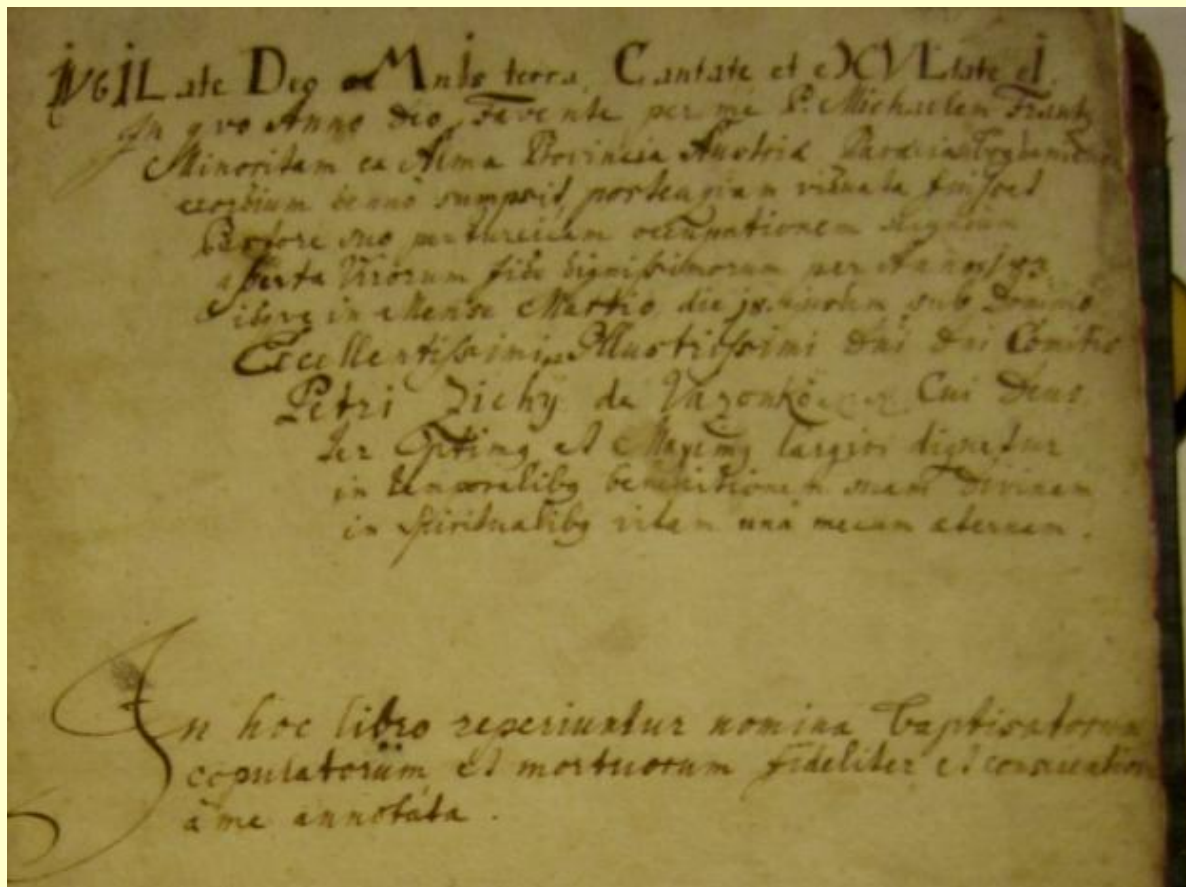 IVbILate Deo oMnIs terra, Cantate et eXVLtate eI.
In qvo Anno deo Favente per me P. Michaelem Frantz
Minoritam ex Alma Provincia Austriæ Parocia
exordium denuo sumpsit, postquam viduata fuisset
Pastore suo per
asserta Virorum fide dignissimorum per Annos 183
in Mense Martio die 18. sub Dominio
Excellentissimi Illustrissimi Dni Dni Comitis
Petri Zichÿ de Vasonkö Cui Deus
ter Optimg et Maximg largiri dignetur
in temporalibg benedictionem suam Divinam
in spiritualibg vitam unà mecum æternam.
In hoc libro reperiuntur nomina Baptisatorum
copulatorum et mortuorum fideliter et
à me annotata.